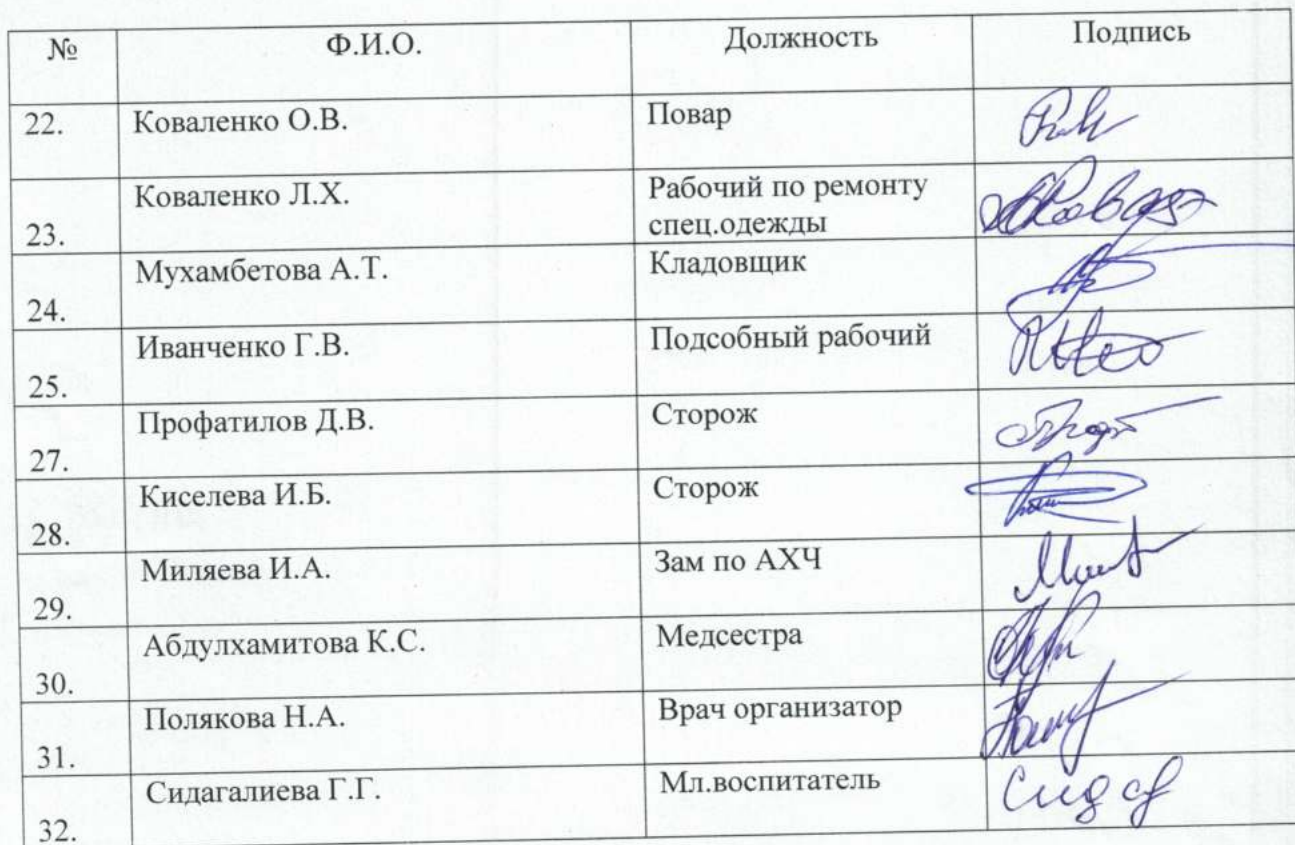 № Ф.И.О. Должность Подпись
22. Коваленко О.В. Повар
Коваленко Л.Х. Рабочий по ремонту
23. спец.одежды
Мухамбетова А.Т. Кладовщик
24.
Иванченко Г.В. Подсобный рабочий
25.
Профатилов Д.В. Сторож
27.
Киселева И.Б. Сторож
28.
Миляева И.А. Зам по АХЧ
29.
Абдулхамитова К.С. Медсестра
30.
Полякова Н.А. Врач организатор
31.
Сидагалиева Г.Г. Мл.воспитатель
32.